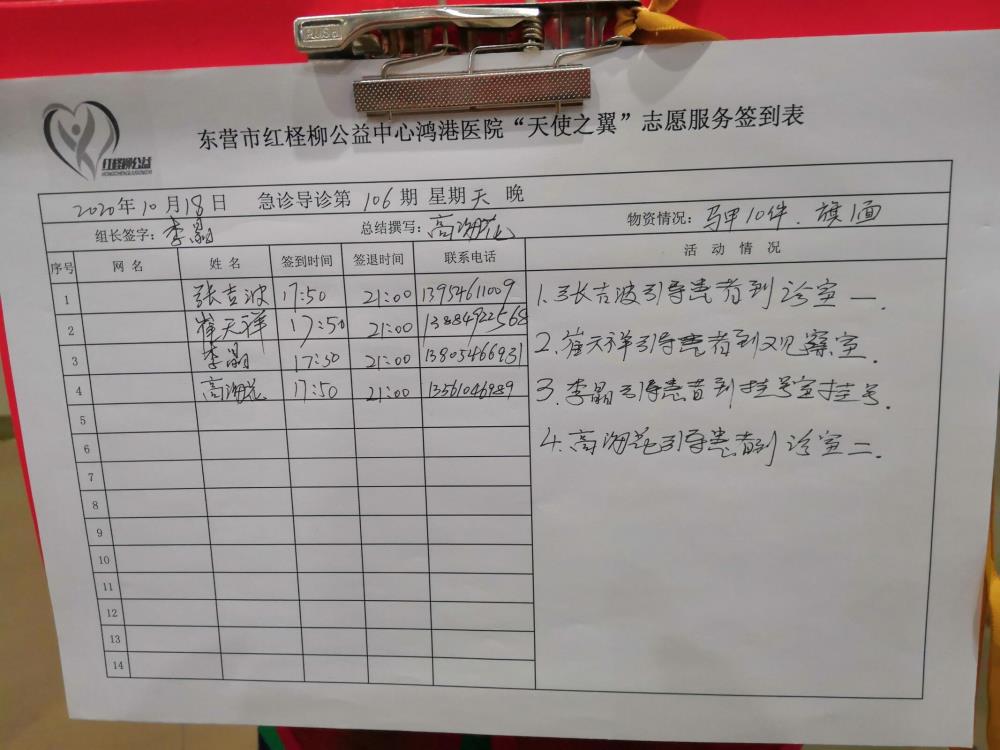 PUSH
红柽柳公益
HONGCHENGLIUGONGYI
东营市红柽柳公益中心鸿港医院“天使之翼”志愿服务签到表
2020年10月18日 急诊导诊第 106 期 星期天 晚
组长签字：李晶 总结撰写：高海花 物资情况：马甲10件、旗1面
序号 网名 姓名 签到时间 签退时间 联系电话 活动情况
1 张吉波 17:50 21:00 13954611009
2 崔天祥 17:50 21:00 13884922568
3 李晶 17:50 21:00 13805466931
4 高海花 17:50 21:00 13561046989
5
6
7
8
9
10
11
12
13
14
1.张吉波引导患者到诊室一.
2.崔天祥引导患者到观察室.
3.李晶引导患者到挂号室挂号.
4.高海花引导患者到诊室二.